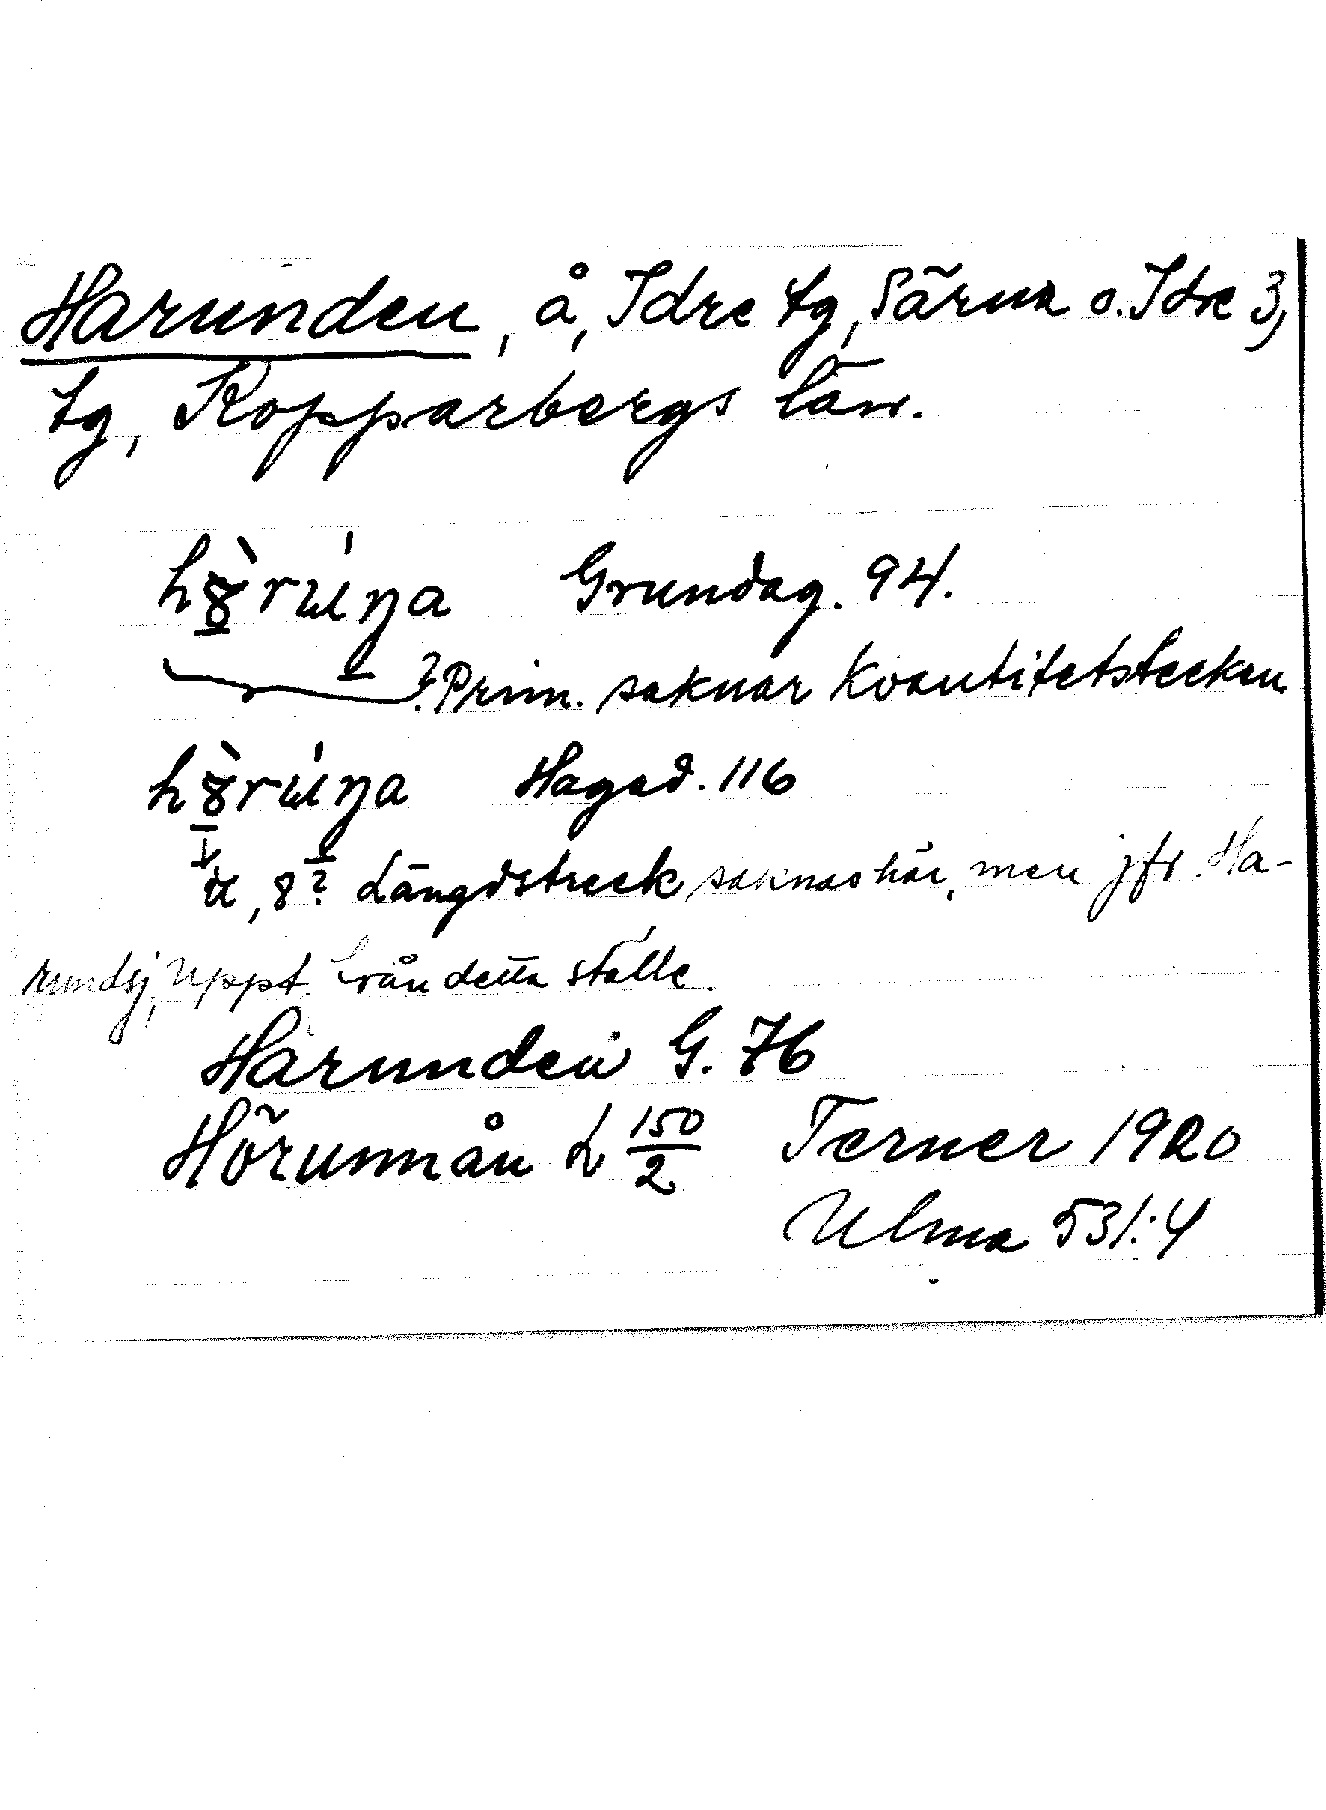 Harunden, å, Idre tg, Särna o. Idre 3,
tg, Kopparbergs län.
Grundag. 94.
? Prim. saknar kvantitetstecken
Hagad. 116
Längdstreck saknas här, men jfr. Ha-
rundsj, uppt. från detta ställe.
Harunden G. 76
Hörunnån L 150/2 Terner 1920
Ulma 531:4